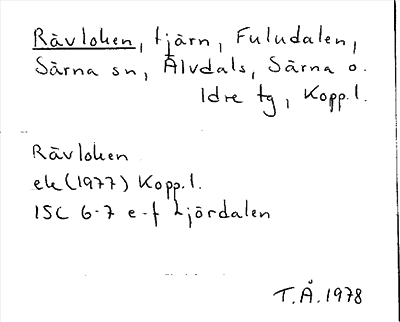 Rävloken, tjärn, Fuludalen,
Särna sn, Älvdals, Särna o.
Idre tg, Kopp.l.
Rävloken
ek (1977) Kopp.l.
15C 6-7 e-f Ljördalen
T.Å. 1978